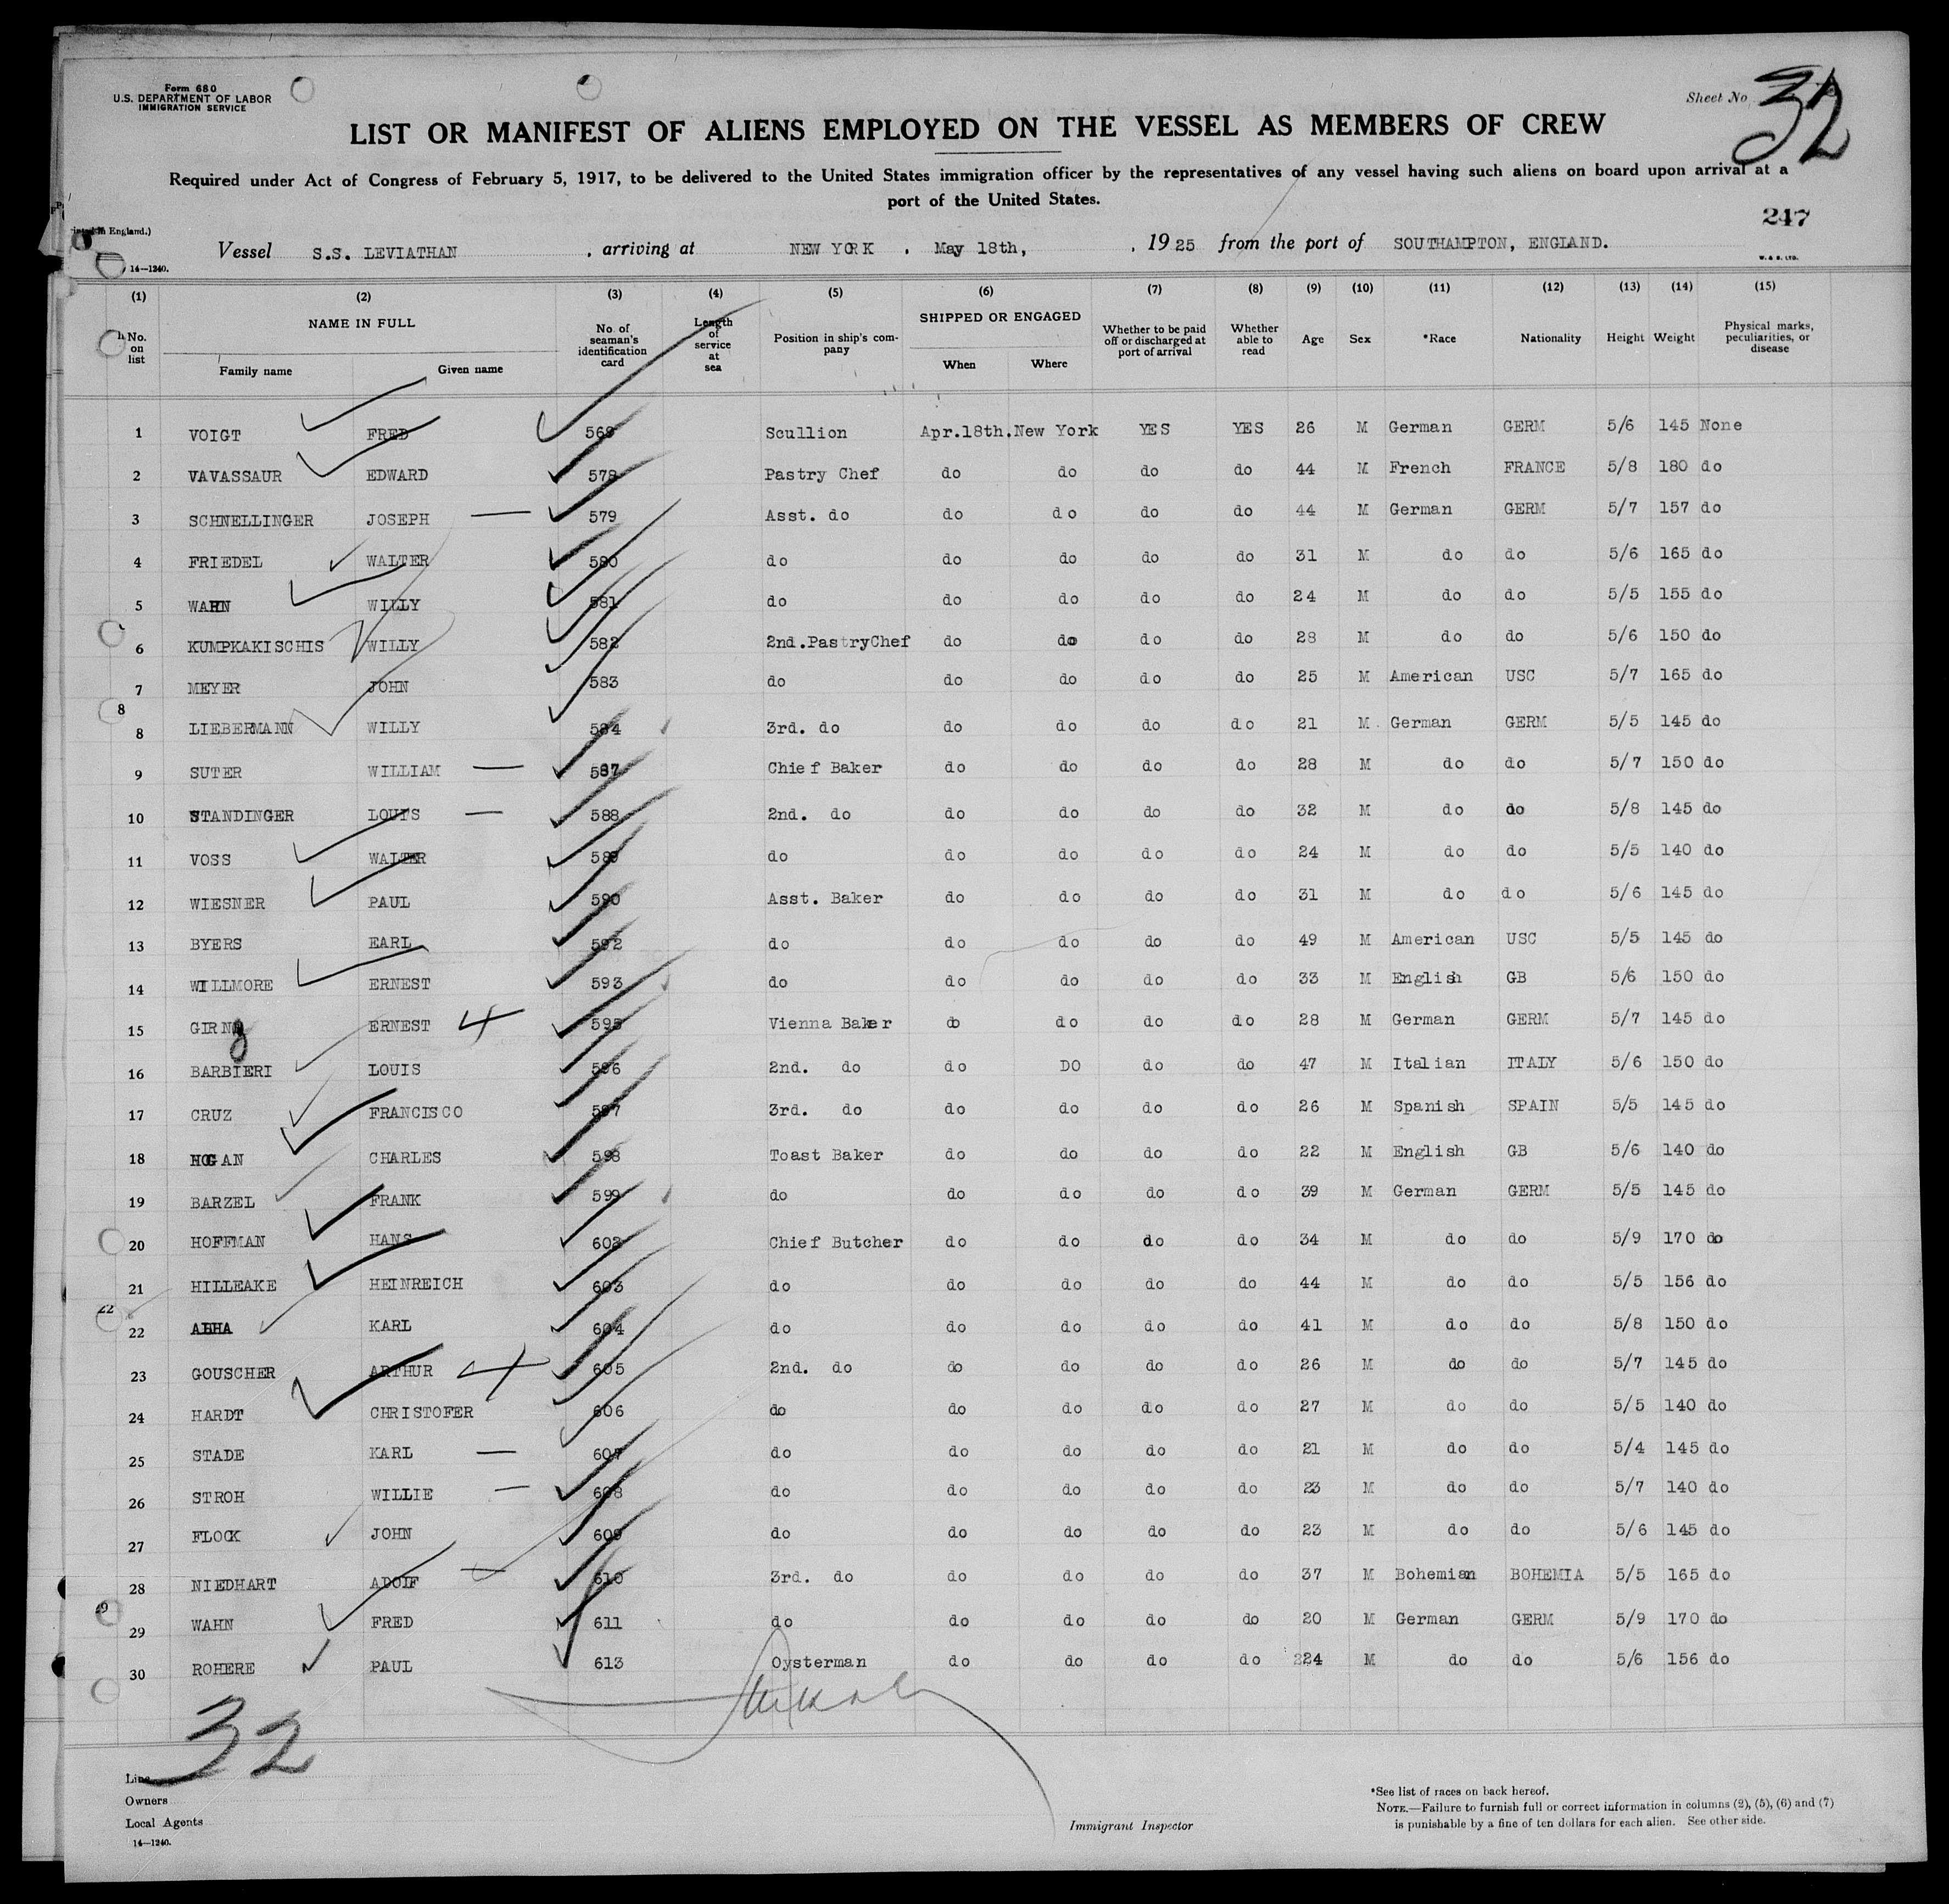 Form 680
U.S. DEPARTMENT OF LABOR
IMMIGRATION SERVICE
Sheet No 32
LIST OR MANIFEST OF ALIENS EMPLOYED ON THE VESSEL AS MEMBERS OF CREW
Required under Act of Congress of February 5, 1917, to be delivered to the United States immigration officer by the representatives of any vessel having such aliens on board upon arrival at a
port of the United States.
247
in England.)
Vessel S.S. LEVIATHAN , arriving at NEW YORK . May 18th, , 1925 from the port of SOUTHAMPTON, ENGLAND.
14—1240.
W. & S. LTD.
(1) (2) (3) (4) (5) (6) (7) (8) (9) (10) (11) (12) (13) (14) (15)
No. on list NAME IN FULL Family name Given name No. of seaman's identification card Length of service at sea Position in ship's company SHIPPED OR ENGAGED When Where Whether to be paid off or discharged at port of arrival Whether able to read Age Sex *Race Nationality Height Weight Physical marks, peculiarities, or disease
1 VOIGT FRED 568 Scullion Apr.18th. New York YES YES 26 M German GERM 5/6 145 None
2 VAVASSAUR EDWARD 578 Pastry Chef do do do do 44 M French FRANCE 5/8 180 do
3 SCHNELLINGER JOSEPH 579 Asst. do do do do do 44 M German GERM 5/7 157 do
4 FRIEDEL WALTER 580 do do do do do 31 M do do 5/6 165 do
5 WAHN WILLY 581 do do do do do 24 M do do 5/5 155 do
6 KUMPKAKISCHIS WILLY 582 2nd.PastryChef do do do do 28 M do do 5/6 150 do
7 MEYER JOHN 583 do do do do do 25 M American USC 5/7 165 do
8
8 LIEBERMANN WILLY 584 3rd. do do do do do 21 M German GERM 5/5 145 do
9 SUTER WILLIAM 587 Chief Baker do do do do 28 M do do 5/7 150 do
10 STANDINGER LOUIS 588 2nd. do do do do do 32 M do do 5/8 145 do
11 VOSS WALTER 589 do do do do do 24 M do do 5/5 140 do
12 WIESNER PAUL 590 Asst. Baker do do do do 31 M do do 5/6 145 do
13 BYERS EARL 592 do do do do do 49 M American USC 5/5 145 do
14 WILLMORE ERNEST 593 do do do do do 33 M English GB 5/6 150 do
15 ERNEST 595 Vienna Baker do do do do 28 M German GERM 5/7 145 do
16 BARBIERI LOUIS 596 2nd. do do DO do do 47 M Italian ITALY 5/6 150 do
17 CRUZ FRANCISCO 597 3rd. do do do do do 26 M Spanish SPAIN 5/5 145 do
18 HOGAN CHARLES 598 Toast Baker do do do do 22 M English GB 5/6 140 do
19 BARZEL FRANK 599 do do do do do 39 M German GERM 5/5 145 do
20 HOFFMAN HANS 602 Chief Butcher do do do do 34 M do do 5/9 170 do
21 HILLEAKE HEINREICH 603 do do do do do 44 M do do 5/5 156 do
22
22 KARL 604 do do do do do 41 M do do 5/8 150 do
23 GOUSCHER ARTHUR 605 2nd. do do do do do 26 M do do 5/7 145 do
24 HARDT CHRISTOFER 606 do do do do do 27 M do do 5/5 140 do
25 STADE KARL 607 do do do do do 21 M do do 5/4 145 do
26 STROH WILLIE 608 do do do do do 23 M do do 5/7 140 do
27 FLOCK JOHN 609 do do do do do 23 M do do 5/6 145 do
28 NIEDHART ADOLF 610 3rd. do do do do do 37 M Bohemian BOHEMIA 5/5 165 do
29 WAHN FRED 611 do do do do do 20 M German GERM 5/9 170 do
30 ROHERE PAUL 613 Oysterman do do do do 24 M do do 5/6 156 do
32
Line
Owners
Local Agents
14—1240.
Immigrant Inspector
*See list of races on back hereof.
NOTE.—Failure to furnish full or correct information in columns (2), (5), (6) and (7)
is punishable by a fine of ten dollars for each alien. See other side.